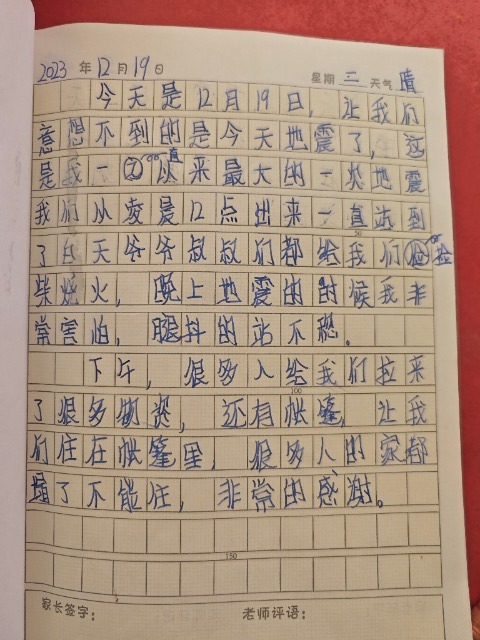 2023年12月19日 星期 三 天气 晴
今天是12月19日，让我们
意想不到的是今天地震了，这
是我一直以来最大的一次地震
我们从凌晨12点出来一直站到
了白天爷爷叔叔们都给我们捡
柴烧火，晚上地震的时候我非
常害怕，腿抖的站不稳。
50
下午，很多人给我们拉来
100
了很多物资，还有帐篷，让我
们住在帐篷里，很多人的家都
塌了不能住，非常的感谢。
150
家长签字： 老师评语：